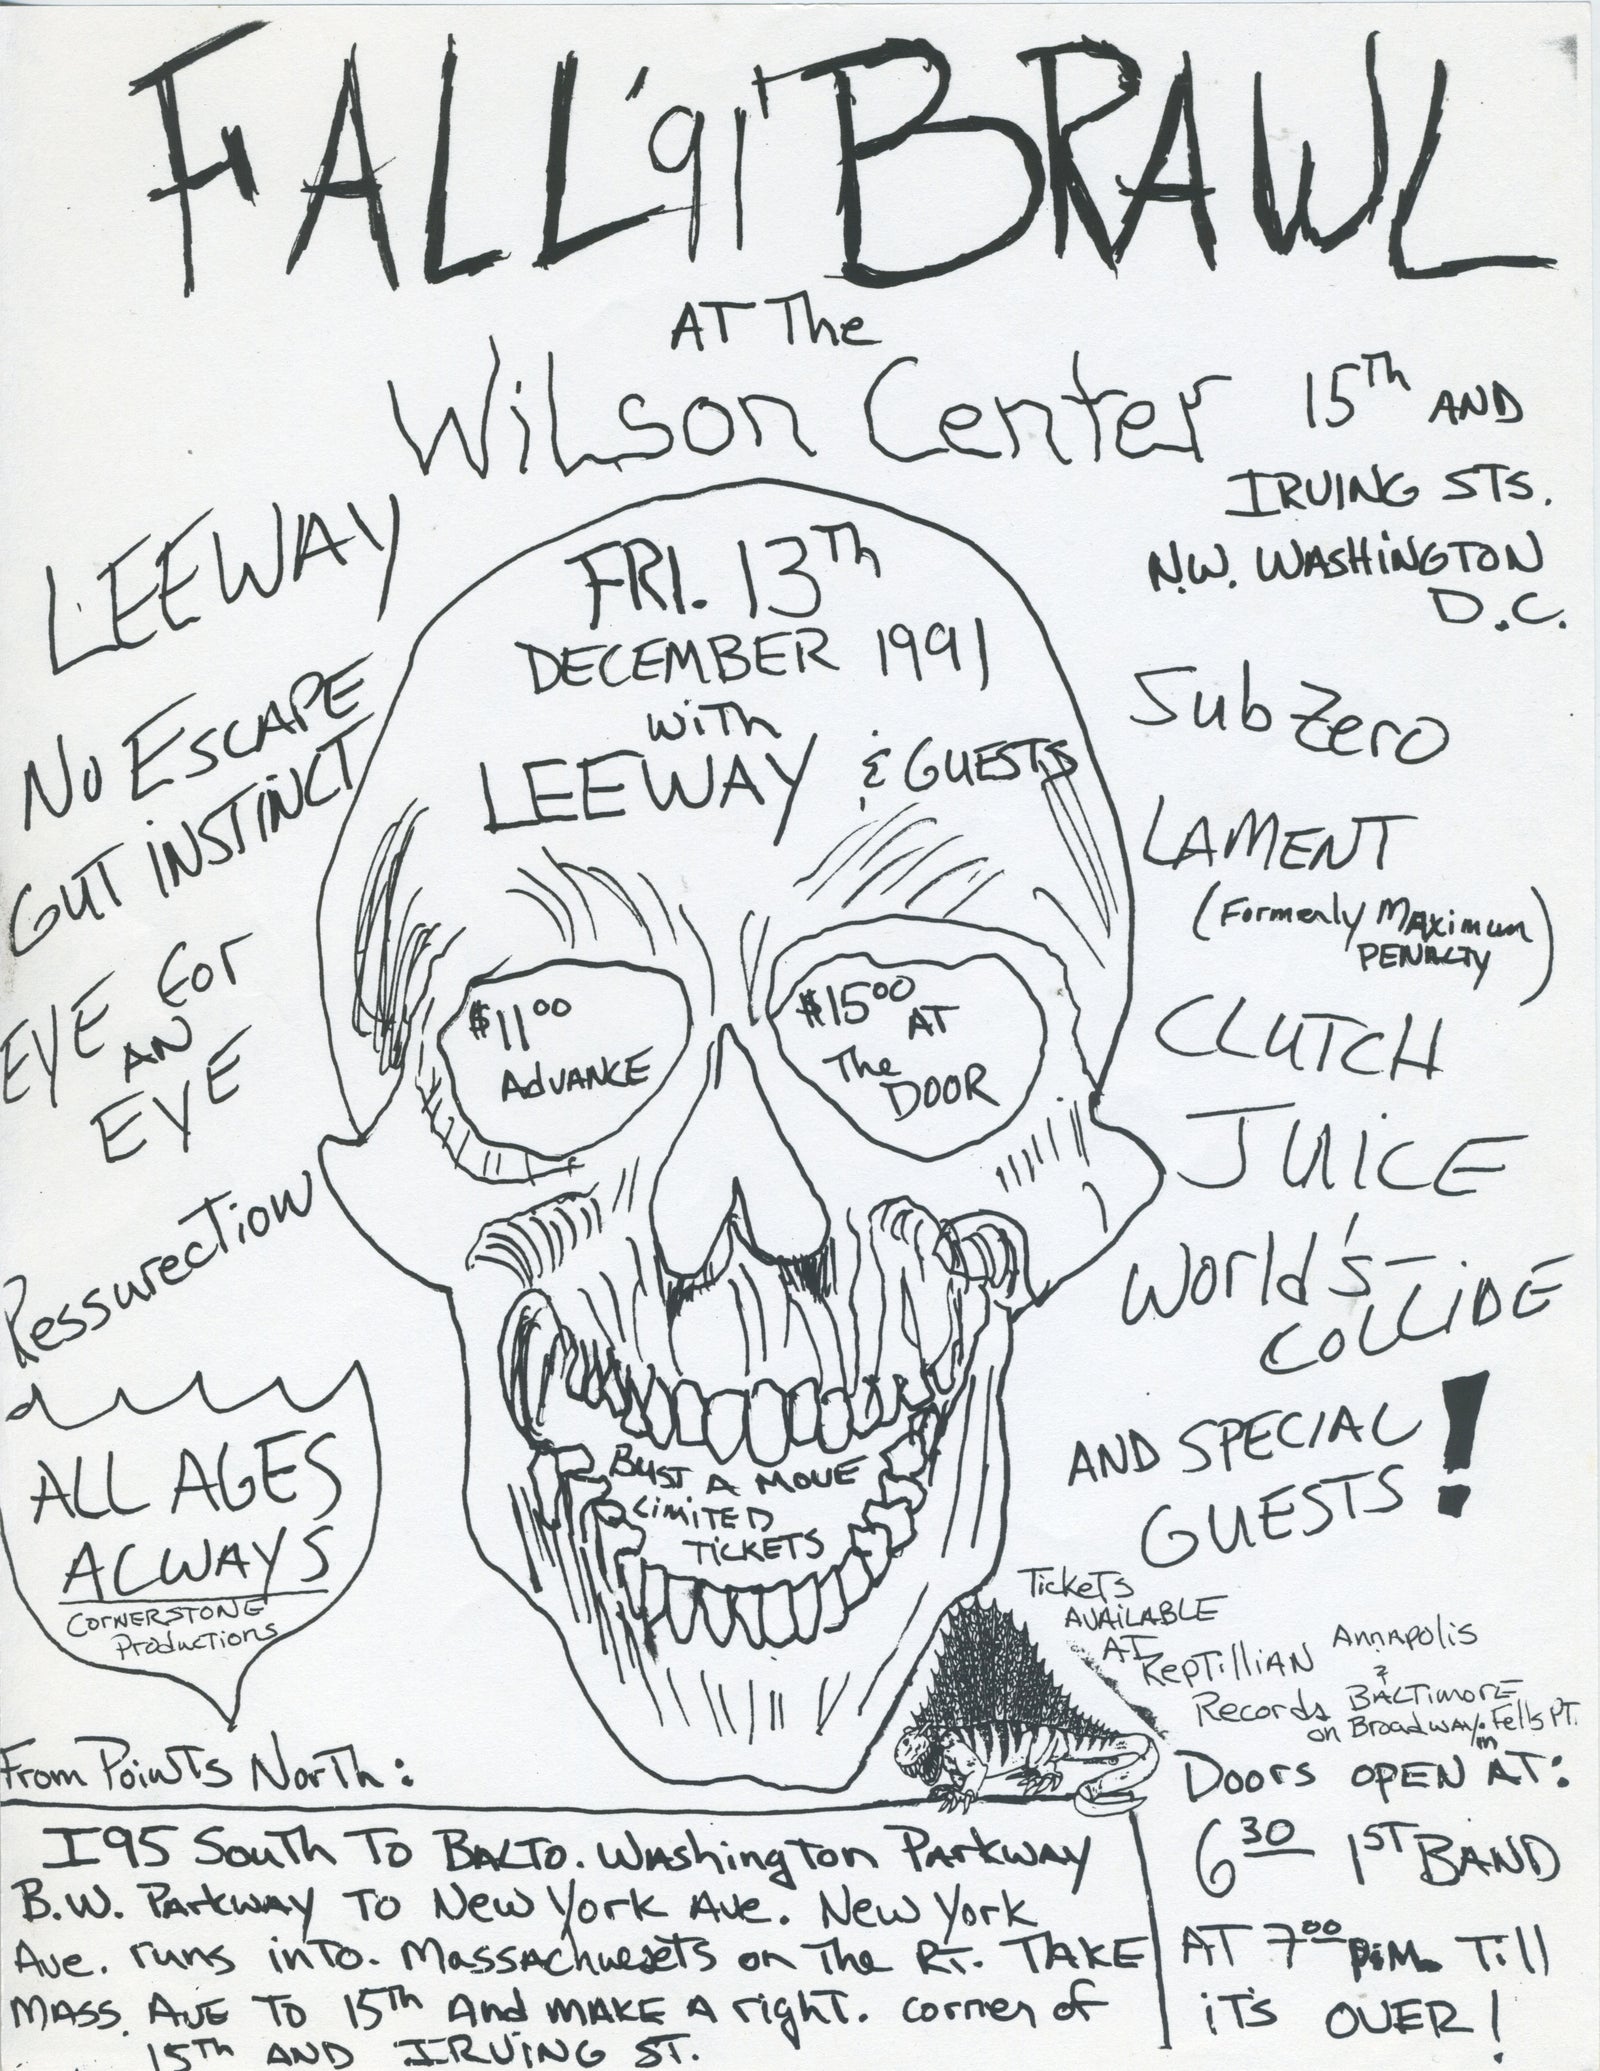 FALL '91' BRAWL
AT The
Wilson Center
15Th AND
IRVING STS.
N.W. WASHINGTON
D.C.
FRI. 13Th
DECEMBER 1991
with
LEEWAY & GUESTS
LEEWAY
No Escape
GUT iNSTiNCT
EYE For
AN
EYE
RessurecTion
Sub Zero
LAMENT
(Formerly Maximum
PENALTY)
CLUTCH
JUiCE
World's-
COLLiDE
AND SPECIAL
GUESTS!
$11.00
AdVANCE
$15.00 AT
The
DOOR
BUST A MOVE
LiMiTED
TiCKETS
ALL AGES
ALWAYS
CORNERSTONE
Productions
TickeTs
AVAiLABLE
AT
RepTillian
Records
Annapolis
&
BALTimorE
on Broadway in Fells PT.
From Points North:
I95 South To BALTO. Washington Parkway
B.W. Parkway To New York Ave. New York
Ave. runs into. Massachusetts on The RT. TAKE
MASS. AVE To 15Th And MAKE A right. corner of
15Th AND IRVING ST.
Doors OPEN AT:
6 30 1ST BAND
AT 7 00 P.M. Till
iT'S OVER!